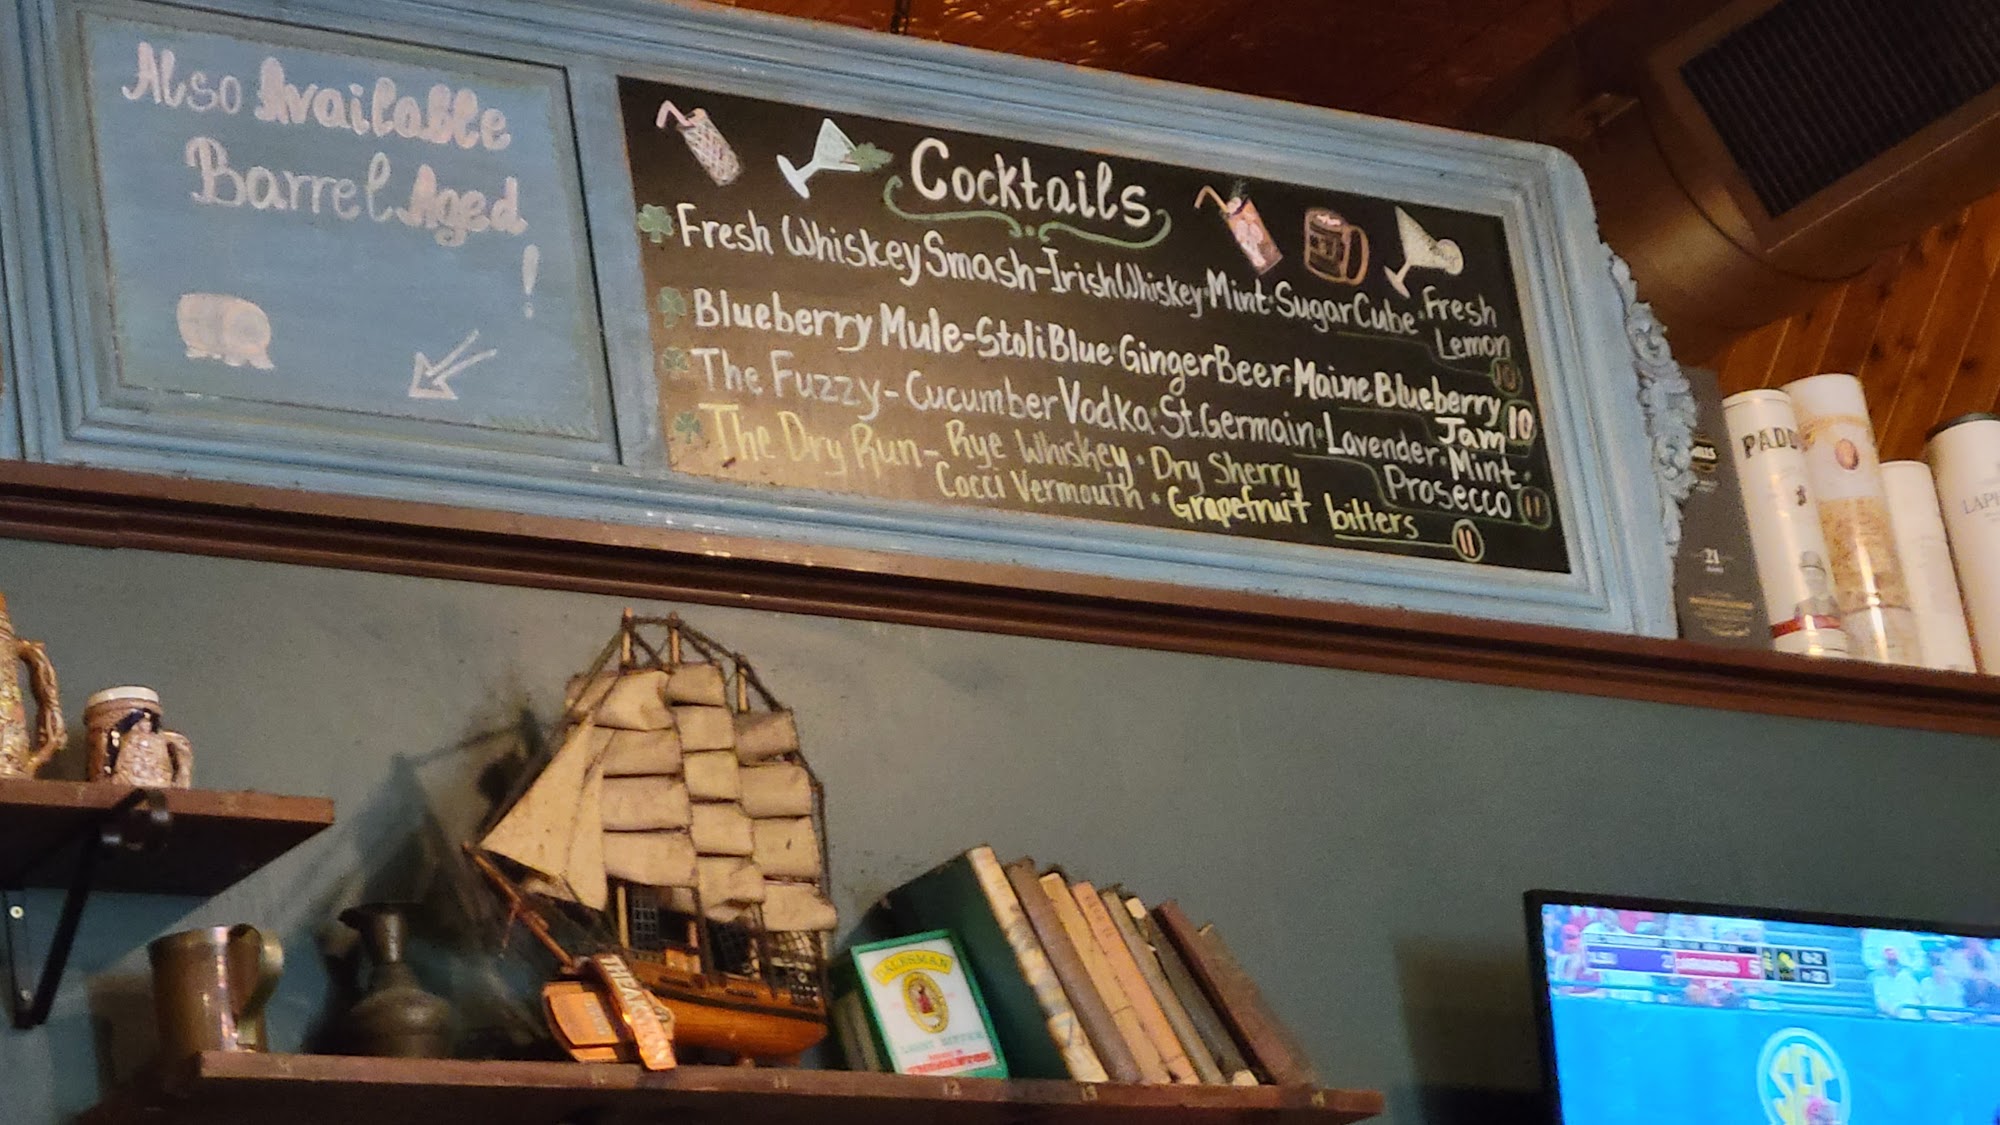 Also Available
Barrel Aged
!
Cocktails
Fresh Whiskey Smash-Irish Whiskey·Mint·Sugar Cube·Fresh
Lemon
10
Blueberry Mule-Stoli Blue·Ginger Beer·Maine Blueberry
Jam 10
The Fuzzy-Cucumber Vodka·St.Germain·Lavender·Mint·
Prosecco 11
The Dry Run-Rye Whiskey·Dry Sherry
Cocci Vermouth·Grapefruit bitters
11
PADD
21
LAPH
TALESMAN
LIGHT BITTER
SEC
11
12
13
14